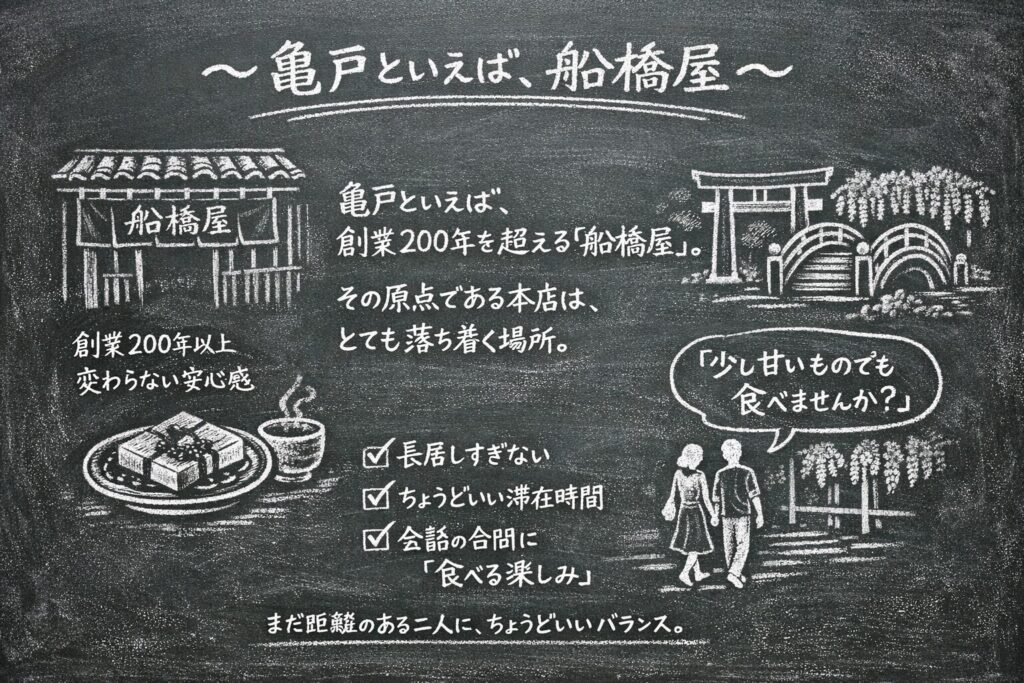 ～亀戸といえば、船橋屋～
船橋屋
創業200年以上
変わらない安心感
亀戸といえば、
創業200年を超える「船橋屋」。
その原点である本店は、
とても落ち着く場所。
「少し甘いものでも
食べませんか?」
☑ 長居しすぎない
☑ ちょうどいい滞在時間
☑ 会話の合間に
「食べる楽しみ」
まだ距離のある二人に、ちょうどいいバランス。